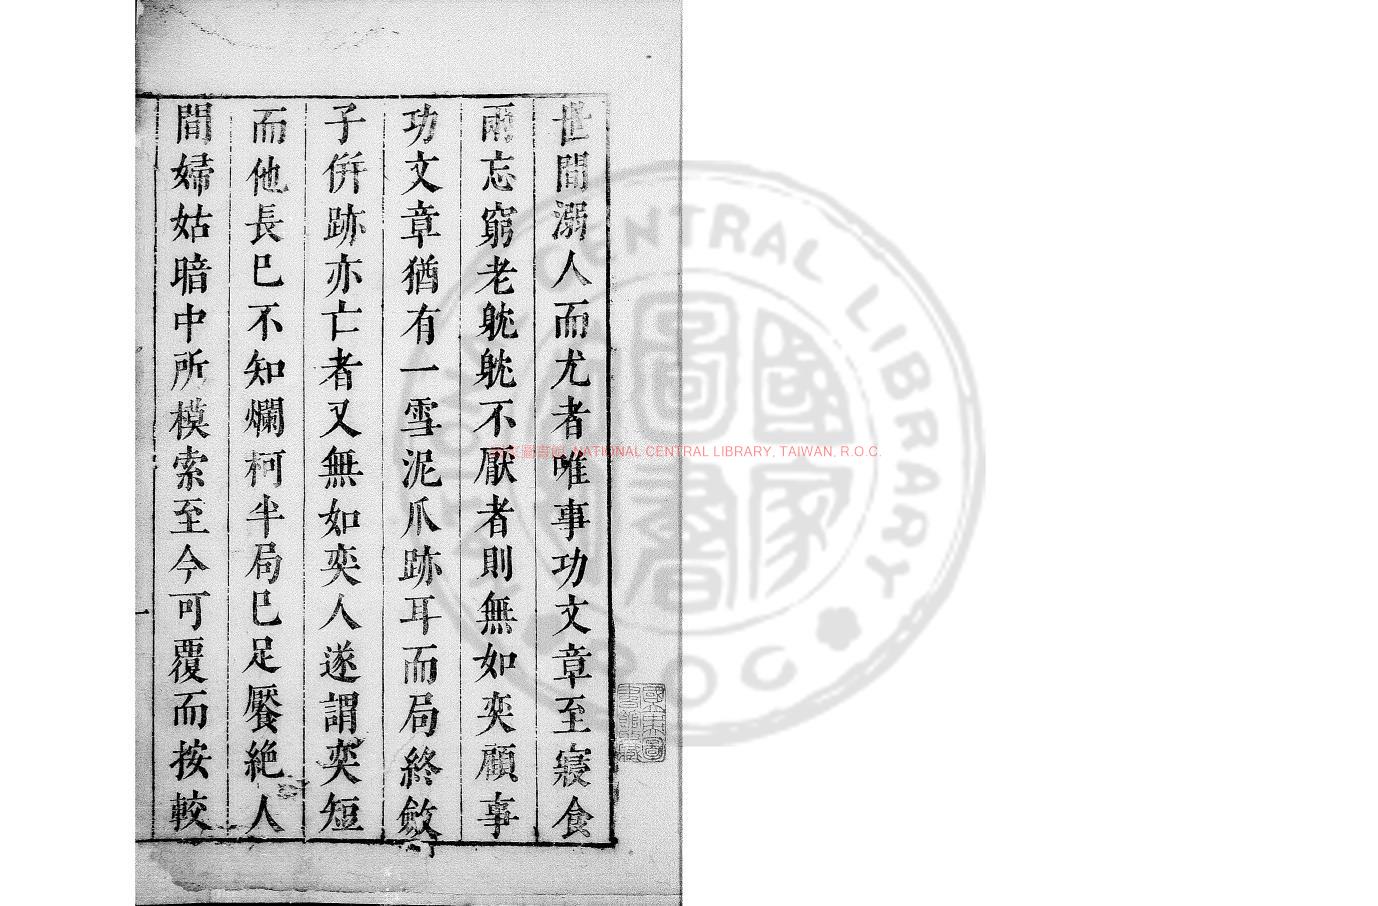 世間溺人而尤者唯事功文章至寢食
兩忘窮老躭躭不厭者則無如奕顧事
功文章猶有一雪泥爪跡耳而局終斂
子併跡亦亡者又無如奕人遂謂奕短
而他長巳不知爛柯半局巳足饜絶人
間婦姑暗中所模索至今可覆而按較
NATIONAL CENTRAL LIBRARY, TAIWAN, R.O.C.
CENTRAL LIBRARY